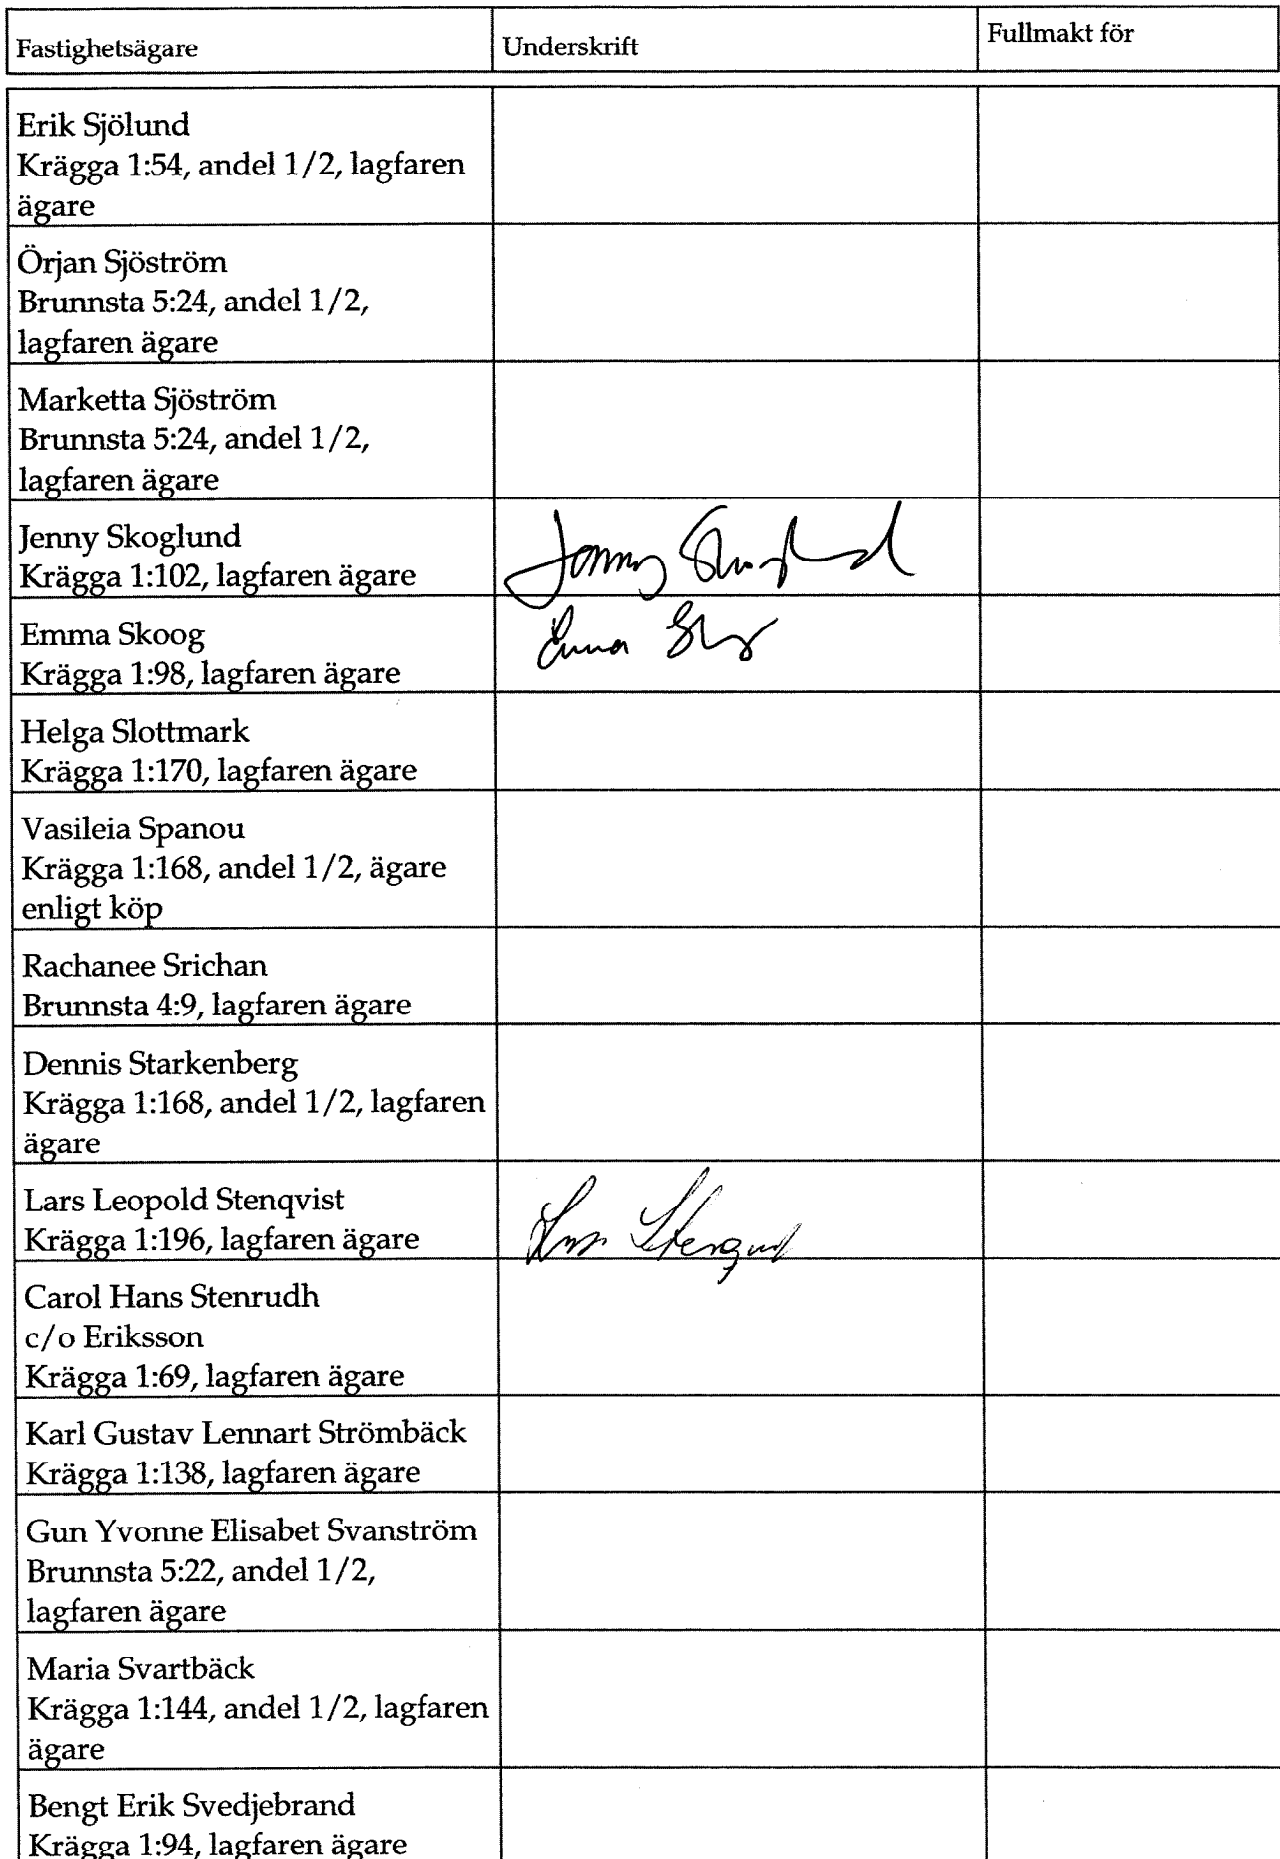 Fastighetsägare Underskrift Fullmakt för
Erik Sjölund
Krägga 1:54, andel 1/2, lagfaren
ägare
Örjan Sjöström
Brunnsta 5:24, andel 1/2,
lagfaren ägare
Marketta Sjöström
Brunnsta 5:24, andel 1/2,
lagfaren ägare
Jenny Skoglund Jenny Skoglund
Krägga 1:102, lagfaren ägare
Emma Skoog Emma Skoog
Krägga 1:98, lagfaren ägare
Helga Slottmark
Krägga 1:170, lagfaren ägare
Vasileia Spanou
Krägga 1:168, andel 1/2, ägare
enligt köp
Rachanee Srichan
Brunnsta 4:9, lagfaren ägare
Dennis Starkenberg
Krägga 1:168, andel 1/2, lagfaren
ägare
Lars Leopold Stenqvist Lars Stenqvist
Krägga 1:196, lagfaren ägare
Carol Hans Stenrudh
c/o Eriksson
Krägga 1:69, lagfaren ägare
Karl Gustav Lennart Strömbäck
Krägga 1:138, lagfaren ägare
Gun Yvonne Elisabet Svanström
Brunnsta 5:22, andel 1/2,
lagfaren ägare
Maria Svartbäck
Krägga 1:144, andel 1/2, lagfaren
ägare
Bengt Erik Svedjebrand
Krägga 1:94, lagfaren ägare